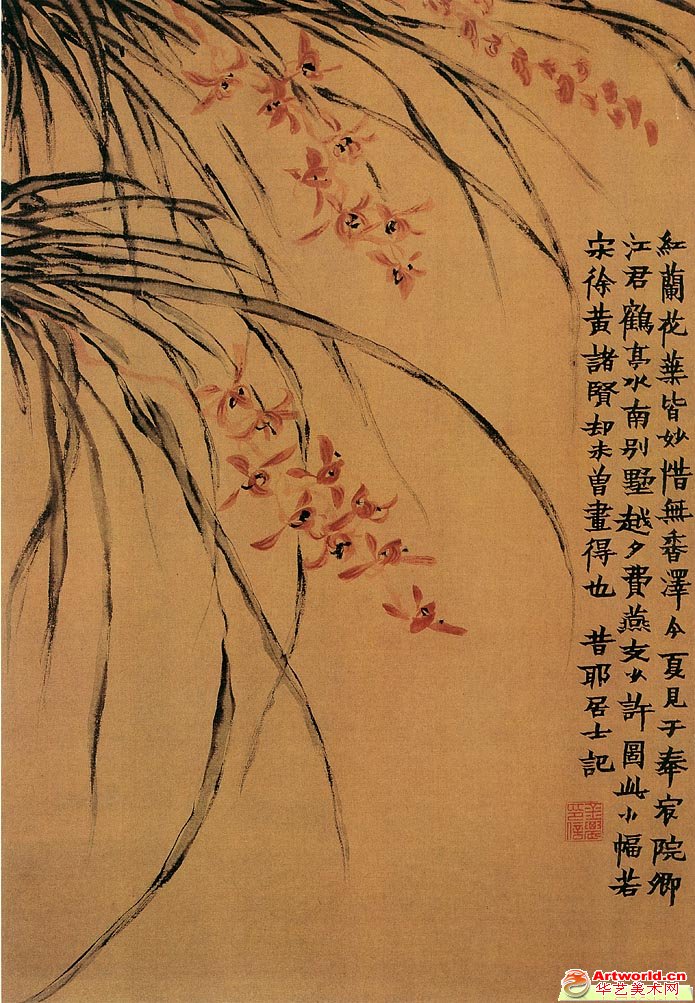 紅蘭花葉皆妙惜無香澤今夏見于奉宸院卿
江君鶴亭水南别墅越夕費燕支少許圖此小幅若
宋徐黄諸賢却未曾畫得也 昔耶居士記
金農印信
Artworld.cn
华艺美术网